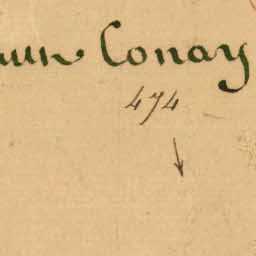 Conay
474